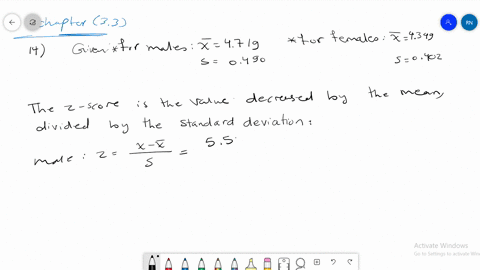 chapter (3.3)
14) Given * for males: x̄ = 4.719 * for females: x̄ = 4.349
s = 0.490 s = 0.402
The z-score is the value decreased by the mean,
divided by the standard deviation:
male: z = x-x̄ / s = 5.5
Activate Windows
Go to Settings to activate Windows.
A RN